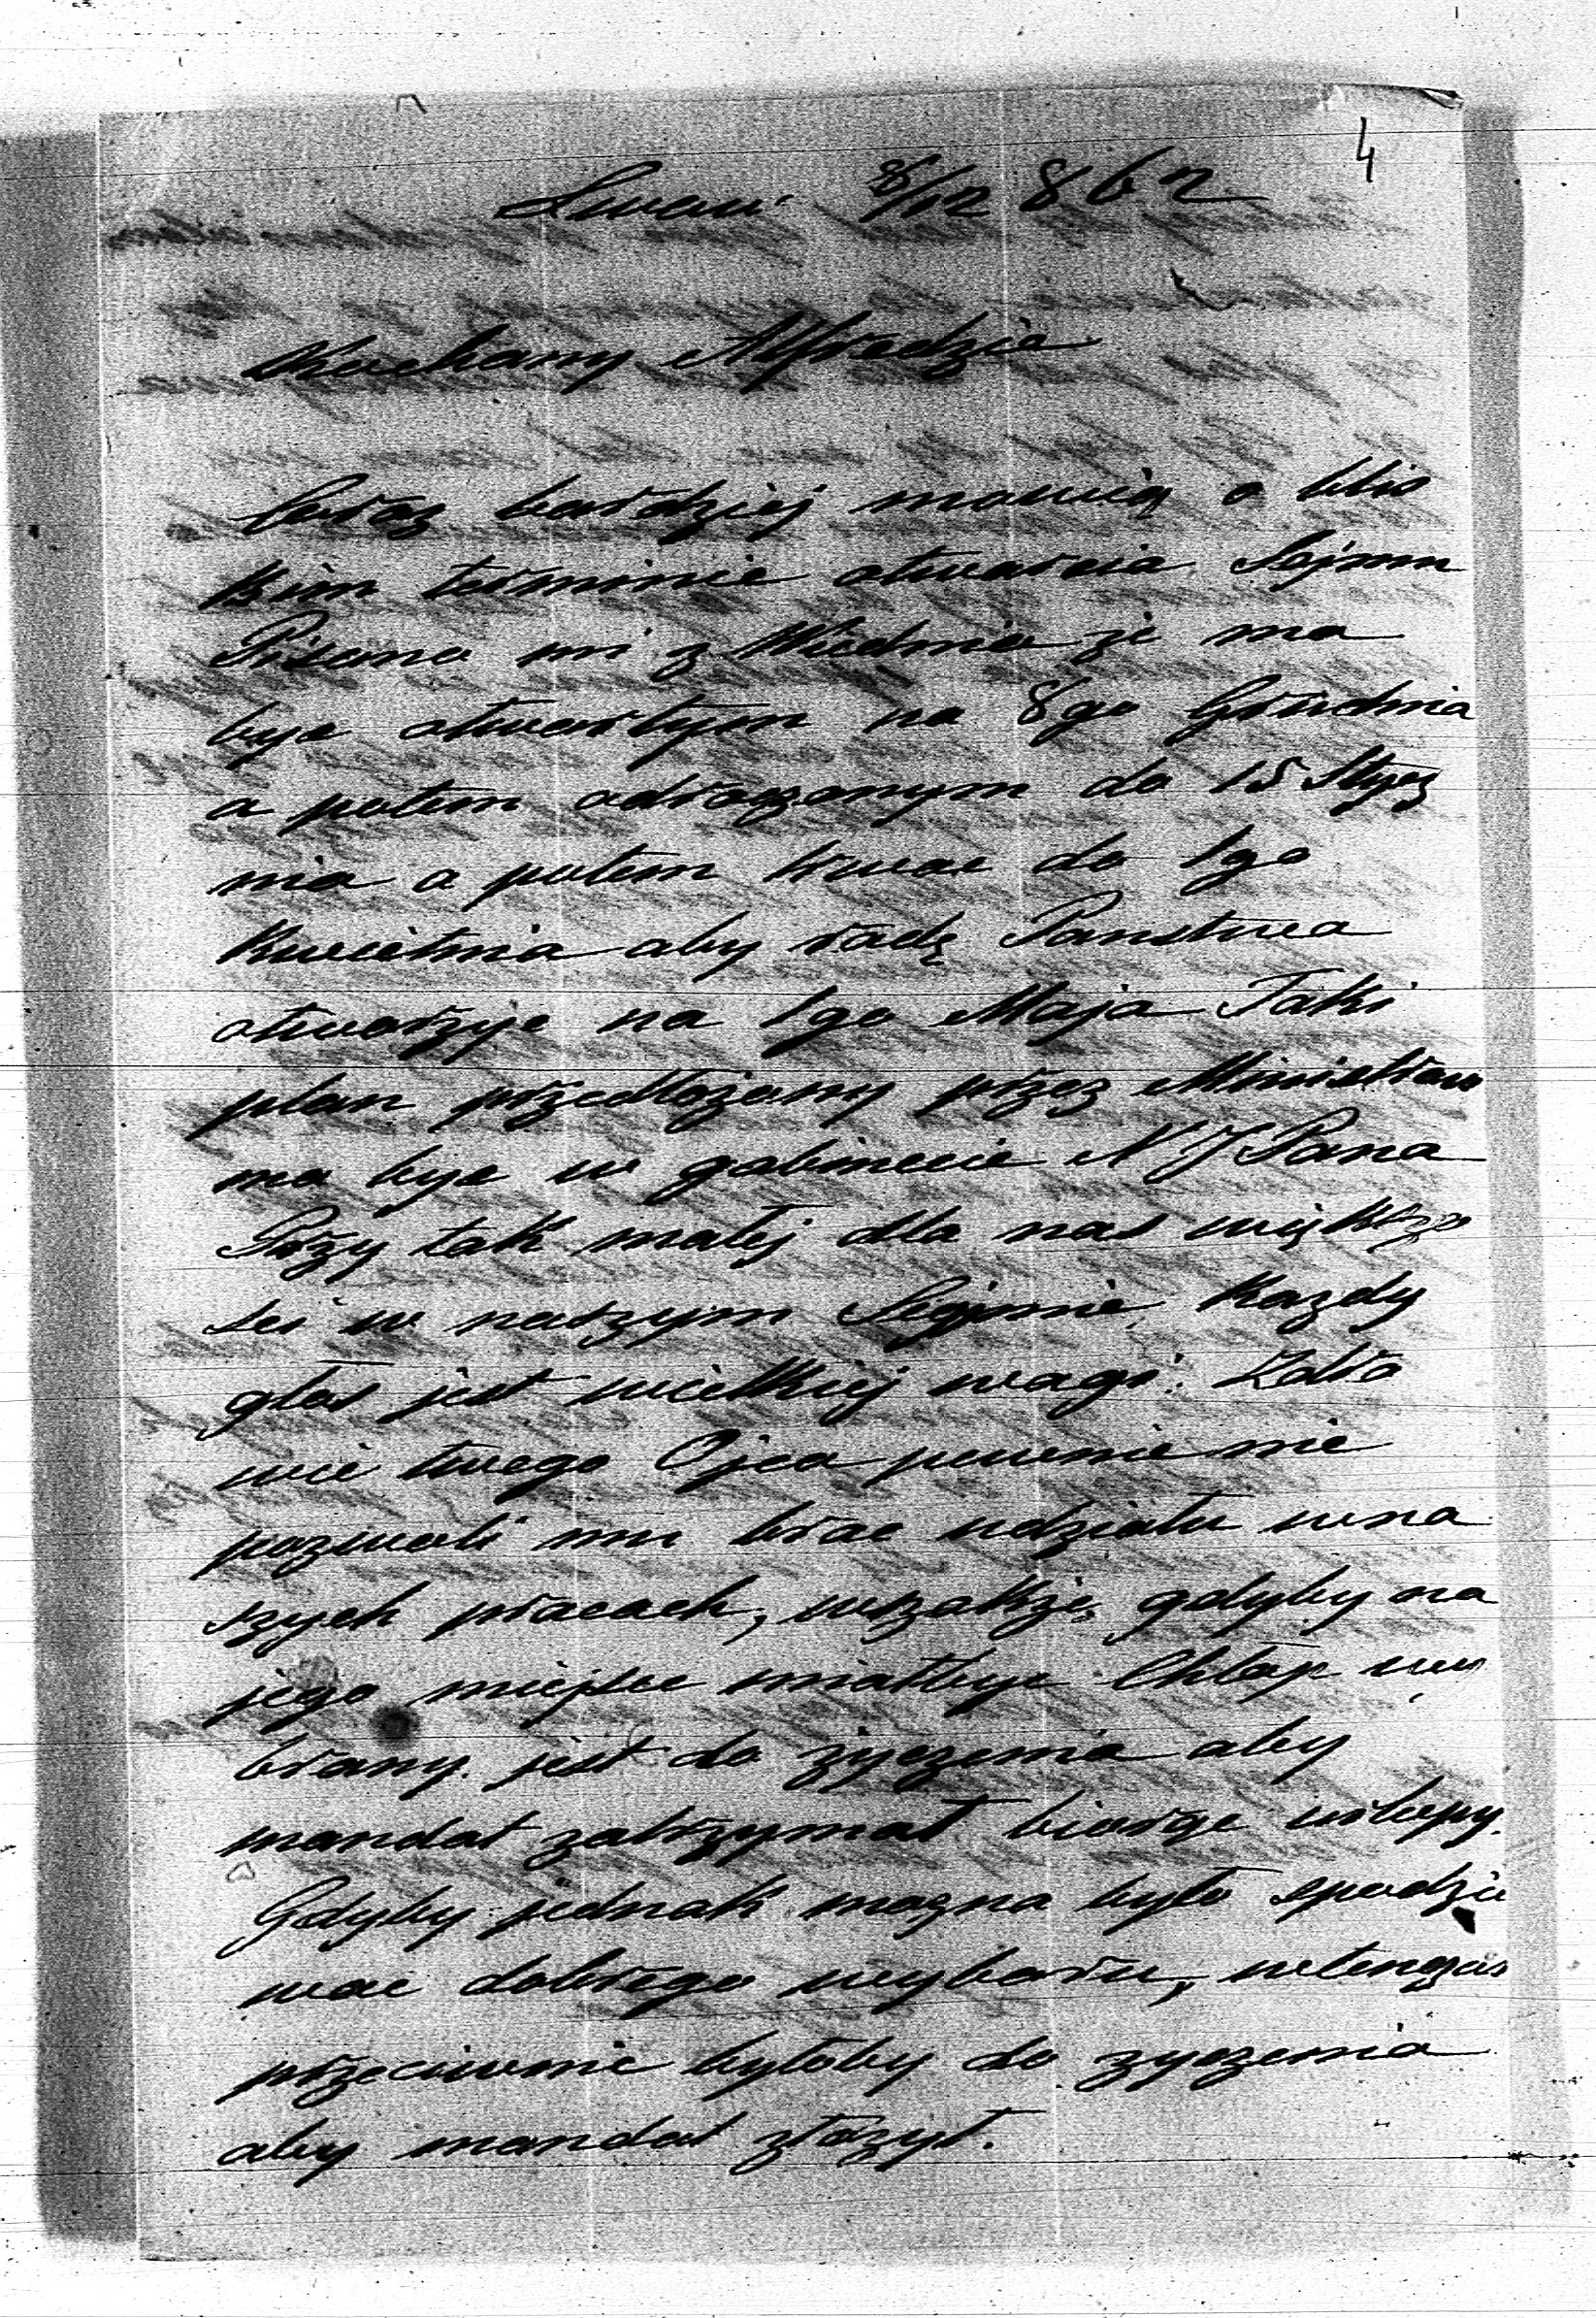 4
Lwow 8/12 862
Kochany Alfredzie
Coraz bardziej mowią o blis
kim terminie otwarcia Sejmu
Pisano mi z Wiednia że ma
byc otwartym na 8go Grudnia
a potem odroczonym do 15 Stycz
nia a potem trwac do 1go
Kwietnia aby radę Panstwa
otworzyc na 1go Maja Taki
plan przedłożony przez Ministrow
ma byc w gabinecie N J Pana
Przy tak małej dla nas większo
sci w naszym Sejmie, Kazdy
głos jest wielkiej wagi. Zdro
wie twego Ojca pewnie nie
pozwoli mu brac udziału w na
szych pracach, wszakże gdyby na
jego miejsce miałbyc Chłop wy
brany. jest do zyczenia aby
mandat zatrzymał biorąc urlopy.
Gdyby jednak mozna było spodzie
wac dobrego wyboru, wtenczas
przeciwnie byłoby do zyczenia
aby mandat złozył.